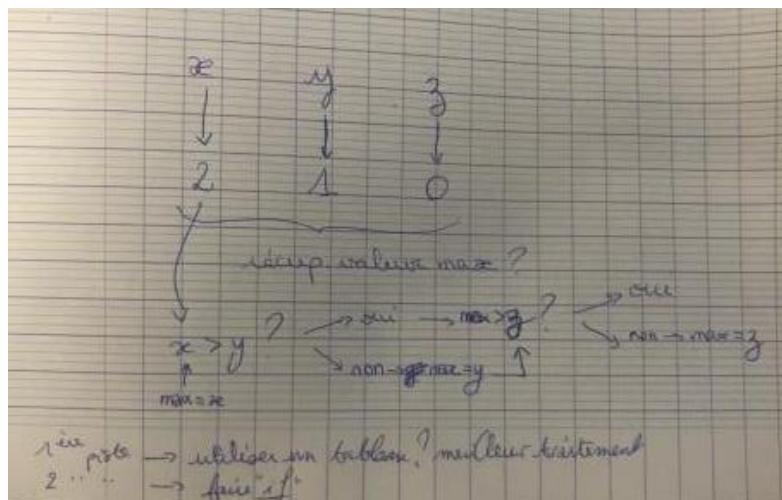 x y z
2 1 0
récup valeur max ?
x > y ? → oui → max > z ? → oui
→ non → max = y → non → max = z
max = x
1ère piste → utiliser un tableau ? meilleur traitement
2 " " → faire "if"